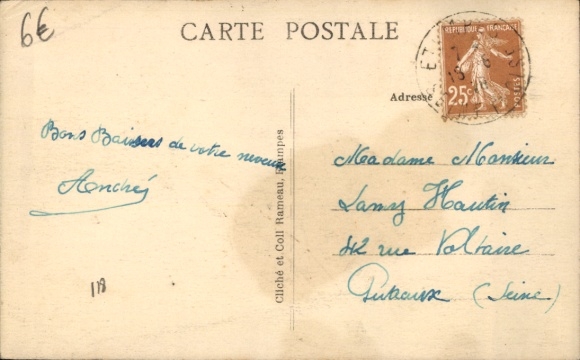 6€
CARTE POSTALE
REPUBLIQUE FRANÇAISE
25c
POSTES
Adresse
Bons Baisers de votre neveu
André
118
Cliché et Coll Rameau, Etampes
Madame Monsieur
Lamy Hautin
42 rue Voltaire
Puteaux (Seine)